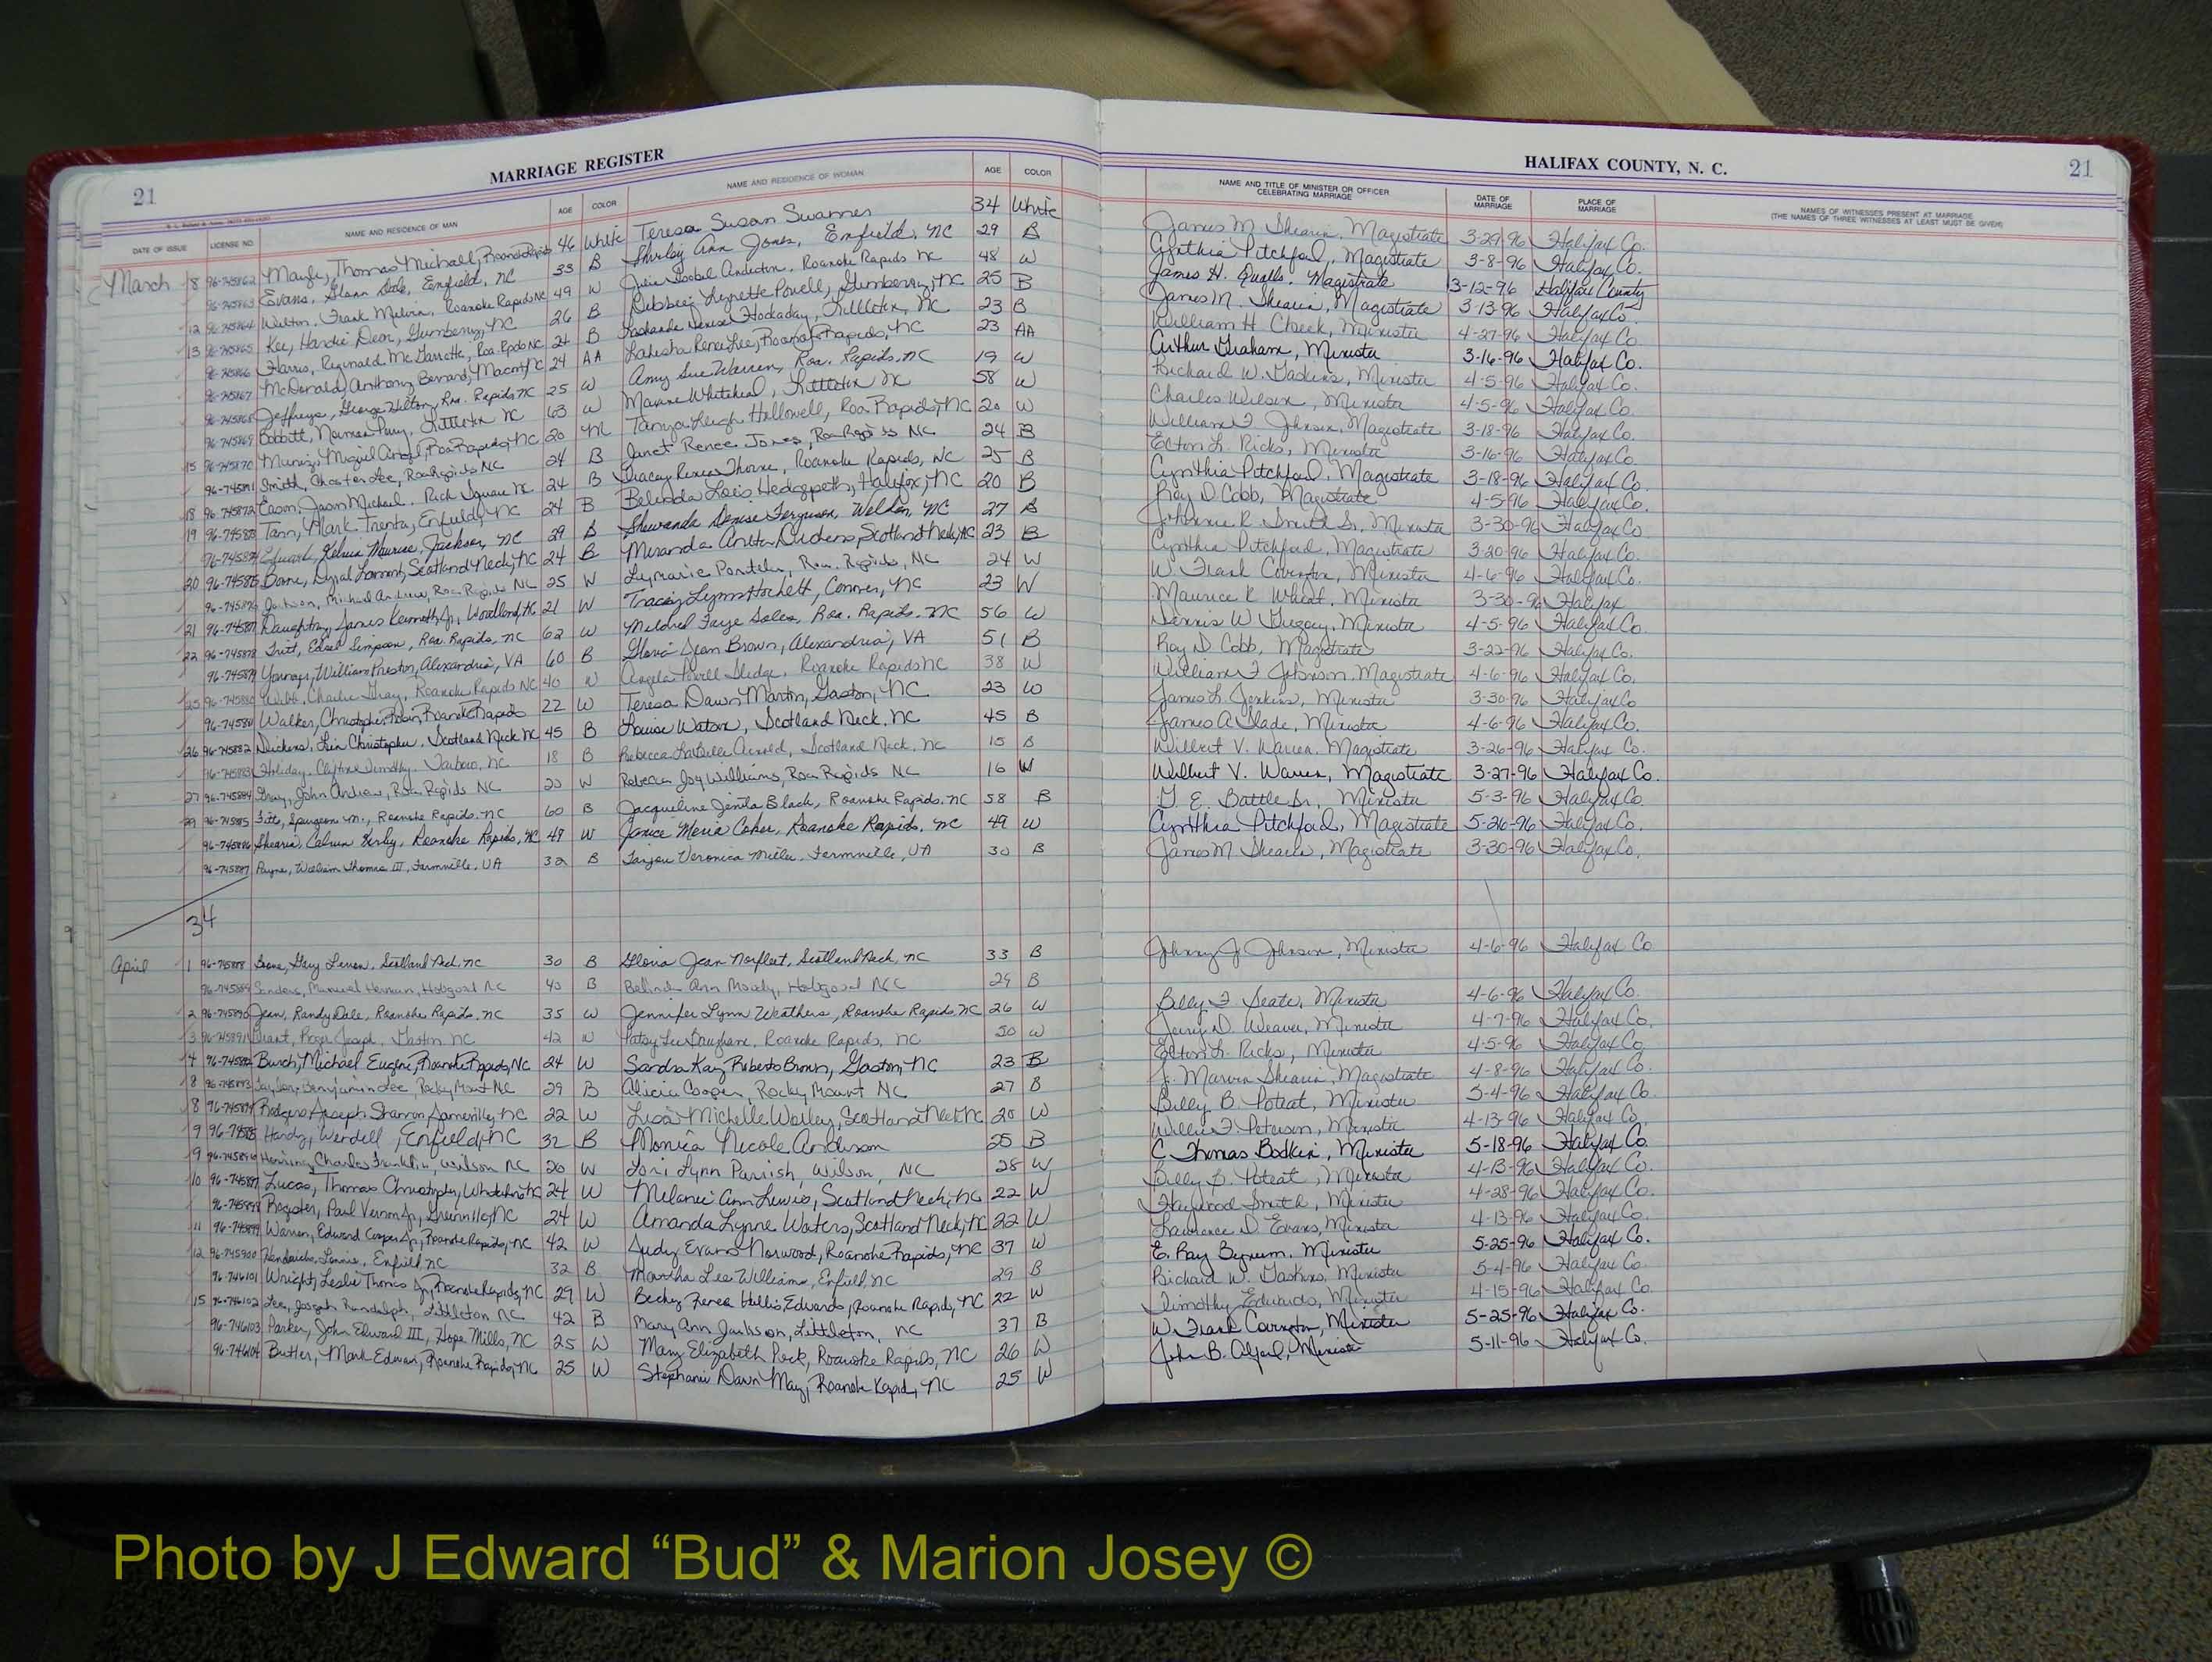 MARRIAGE REGISTER
HALIFAX COUNTY, N. C.
21
21
DATE OF ISSUE LICENSE NO. NAME AND RESIDENCE OF MAN AGE COLOR NAME AND RESIDENCE OF WOMAN AGE COLOR
NAME AND TITLE OF MINISTER OR OFFICER CELEBRATING MARRIAGE DATE OF MARRIAGE PLACE OF MARRIAGE NAMES OF WITNESSES PRESENT AT MARRIAGE (THE NAMES OF THREE WITNESSES AT LEAST MUST BE GIVEN)
March 8 96-745862 Thomas Michael, Roanoke Rapids 46 White Teresa Susan 34 White
96-745863 Evans, Glenn Enfield, NC 33 B Shirley Ann Jones, Enfield, NC 29 B
12 96-745864 Welton, Frank Melvin, Roanoke Rapids NC 49 W Roanoke Rapids NC 48 W
13 96-745865 Kee, Hardie Dean, Gumberry, NC 26 B Debbie Lynette Powell, Gumberry, NC 25 B
96-745866 Harris, Reginald Roa. Rpds NC 26 B Hockaday, Littleton, NC 23 B
96-745867 McDonald, Anthony Bernard, Macon, NC 24 AA Lakesha Renee Lee, Roanoke Rapids, NC 23 AA
96-745868 Jeffreys, George Hilton, Roa. Rapids NC 25 W Amy Sue Warren, Roa. Rapids, NC 19 W
96-745869 Bobbitt, Norman Perry, Littleton NC 63 W Maxine Whitehead, Littleton NC 58 W
15 96-745870 Muniz, Miguel Angel, Roa Rapids, NC 20 Tanya Leigh Hallowell, Roa Rapids, NC 20 W
96-745871 Smith, Chester Lee, Roa Rapids NC 24 B Janet Renee Jones, Roa Rapids NC 24 B
18 96-745872 Eason, Jason Michael, Rich Square NC 24 B Tracey Renee Thorne, Roanoke Rapids, NC 25 B
19 96-745873 Tann, Mark Trento, Enfield, NC 24 B Belinda Lois Hedgepeth, Halifax, NC 20 B
96-745874 Kelvin Maurice, Jackson, NC 29 B Shewanda Denise Ferguson, Weldon, NC 27 B
20 96-745875 Lamont, Scotland Neck, NC 24 B Miranda Scotland Neck, NC 23 B
96-745876 Jackson, Michael Andrew, Roa. Rapids NC 25 W Roa. Rapids, NC 24 W
21 96-745877 Daughtry, James Kenneth Jr., Woodland, NC 21 W Tracey Lynn Hockett, Conner, NC 23 W
22 96-745878 Tritt, Edsel Simpson, Roa. Rapids, NC 62 W Mildred Faye Sales, Roa. Rapids, NC 56 W
96-745879 William Preston, Alexandria, VA 60 B Gloria Jean Brown, Alexandria, VA 51 B
25 96-745880 Webb, Charlie Gray, Roanoke Rapids NC 40 W Angela Powell Sledge, Roanoke Rapids NC 38 W
96-745881 Walker, Christopher Robin, Roanoke Rapids 22 W Teresa Dawn Martin, Gaston, NC 23 W
26 96-745882 Dickens, Christopher, Scotland Neck NC 45 B Louise Watson, Scotland Neck, NC 45 B
96-745883 Holiday, Clifton Timothy, Tarboro, NC 18 B Rebecca LaBelle Arnold, Scotland Neck, NC 15 B
27 96-745884 Gray, John Andrew, Roa Rapids NC 20 W Rebecca Joy Williams, Roa Rapids NC 16 W
29 96-745885 Fitts, Spurgeon M., Roanoke Rapids, NC 60 B Jacqueline Black, Roanoke Rapids, NC 58 B
96-745886 Shearin, Calvin Kerby, Roanoke Rapids, NC 49 W Janice Maria Coker, Roanoke Rapids, NC 49 W
96-745887 Payne, William Thomas III, Farmville, VA 32 B Veronica Miller, Farmville, VA 30 B
34
April 1 96-745888 Boone, Gary Lenon, Scotland Neck, NC 30 B Gloria Jean Norfleet, Scotland Neck, NC 33 B
96-745889 Sanders, Manuel Herman, Hobgood NC 40 B Belinda Ann Moody, Hobgood NC 29 B
2 96-745890 Jean, Randy Dale, Roanoke Rapids, NC 35 W Jennifer Lynn Weathers, Roanoke Rapids, NC 26 W
3 96-745891 Grant, Roger Joseph, Gaston NC 42 W Patsy Lee Baughan, Roanoke Rapids, NC 50 W
4 96-745892 Burch, Michael Eugene, Roanoke Rapids, NC 24 W Sandra Kay Roberts Brown, Gaston, NC 23 B
8 96-745893 Taylor, Benjamin Lee, Rocky Mount NC 29 B Alicia Cooper, Rocky Mount NC 27 B
8 96-745894 Rodgers, Joseph Shannon, Jamesville, NC 22 W Lisa Michelle Worley, Scotland Neck NC 20 W
9 96-745895 Hardy, Wendell, Enfield, NC 32 B Monica Nicole Anderson 25 B
9 96-745896 Herring, Charles Franklin, Wilson NC 20 W Lori Lynn Parrish, Wilson, NC 28 W
10 96-745897 Lucas, Thomas Christopher, Whitakers NC 24 W Melanie Ann Lewis, Scotland Neck, NC 22 W
96-745898 Register, Paul Vernon Jr., Greenville, NC 24 W Amanda Lynne Waters, Scotland Neck, NC 22 W
11 96-745899 Warren, Edward Cooper Jr., Roanoke Rapids, NC 42 W Judy Evans Norwood, Roanoke Rapids, NC 37 W
12 96-745900 Hendricks, Lonnie, Enfield, NC 32 B Martha Lee Williams, Enfield, NC 29 B
96-746101 Wright, Leslie Thomas Jr., Roanoke Rapids, NC 29 W Becky Renea Hollis Edwards, Roanoke Rapids, NC 22 W
15 96-746102 Lee, Joseph Randolph, Littleton NC 42 B Mary Ann Jackson, Littleton, NC 37 B
96-746103 Parker, John Edward III, Hope Mills, NC 25 W Mary Elizabeth Peck, Roanoke Rapids, NC 26 W
96-746104 Butler, Mark Edward, Roanoke Rapids, NC 25 W Stephanie Dawn May, Roanoke Rapids, NC 25 W
James M. Shearin, Magistrate 3-29-96 Halifax Co.
Cynthia Pitchford, Magistrate 3-8-96 Halifax Co.
James H. Qualls, Magistrate 3-12-96 Halifax County
James M. Shearin, Magistrate 3-13-96 Halifax Co.
William H. Cheek, Minister 4-27-96 Halifax Co.
Arthur Graham, Minister 3-16-96 Halifax Co.
Richard W. Gaskins, Minister 4-5-96 Halifax Co.
Charles Wilson, Minister 4-5-96 Halifax Co.
William F. Johnson, Magistrate 3-18-96 Halifax Co.
Elton L. Ricks, Minister 3-16-96 Halifax Co.
Cynthia Pitchford, Magistrate 3-18-96 Halifax Co.
Roy D. Cobb, Magistrate 4-5-96 Halifax Co.
Johnnie R. Smith Sr., Minister 3-30-96 Halifax Co
Cynthia Pitchford, Magistrate 3-20-96 Halifax Co.
W. Frank Covington, Minister 4-6-96 Halifax Co.
Maurice K. Wheat, Minister 3-30-96 Halifax
Dennis W. Minister 4-5-96 Halifax Co.
Roy D. Cobb, Magistrate 3-22-96 Halifax Co.
William F. Johnson, Magistrate 4-6-96 Halifax Co.
James L. Jenkins, Minister 3-30-96 Halifax Co.
James A. Slade, Minister 4-6-96 Halifax Co.
Wilbert V. Warren, Magistrate 3-26-96 Halifax Co.
Wilbert V. Warren, Magistrate 3-27-96 Halifax Co.
E. Battle Sr., Minister 5-3-96 Halifax Co.
Cynthia Pitchford, Magistrate 5-26-96 Halifax Co.
James M. Shearin, Magistrate 3-30-96 Halifax Co.
Johnny J. Johnson, Minister 4-6-96 Halifax Co
Billy F. Seate, Minister 4-6-96 Halifax Co.
Jerry D. Weaver, Minister 4-7-96 Halifax Co.
Elton L. Ricks, Minister 4-5-96 Halifax Co.
J. Marvin Shearin, Magistrate 4-8-96 Halifax Co.
Billy B. Poteat, Minister 5-4-96 Halifax Co.
Willie F. Peterson, Minister 4-13-96 Halifax Co.
C. Thomas Bodkin, Minister 5-18-96 Halifax Co.
Billy B. Poteat, Minister 4-13-96 Halifax Co.
Haywood Smith, Minister 4-28-96 Halifax Co.
Lawrence D. Evans, Minister 4-13-96 Halifax Co.
E. Ray Bynum, Minister 5-25-96 Halifax Co.
Richard W. Gaskins, Minister 5-4-96 Halifax Co
Timothy Edwards, Minister 4-15-96 Halifax Co.
W. Frank Covington, Minister 5-25-96 Halifax Co.
John B. Minister 5-11-96 Halifax Co.
Photo by J Edward “Bud” & Marion Josey ©